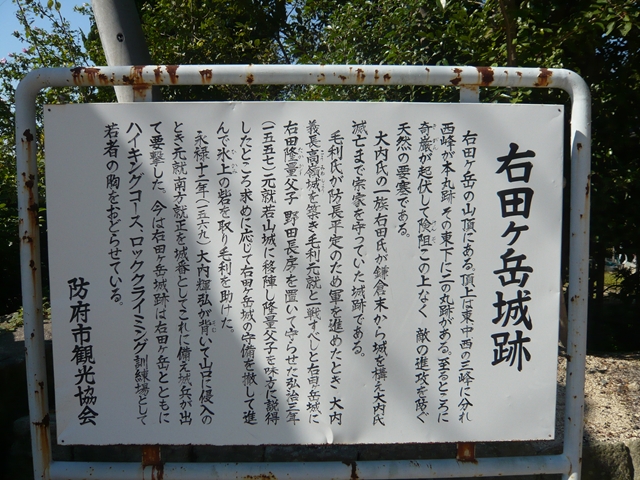 右田ヶ岳城跡
右田ヶ岳の山頂にある。頂上は東中西の三峰に分れ
西峰が本丸跡その東下に二の丸跡がある。至るところに
奇巌が起伏して険阻この上なく 敵の進攻を防ぐ
天然の要塞である。
大内氏の一族右田氏が鎌倉末から城を構え大内氏
滅亡まで宗家を守っていた城跡である。
毛利氏が防長平定のため軍を進めたとき 大内
義長高嶺城を築き毛利元就と一戦すべしと右田岳城に
右田隆量父子 野田長房を置いて守らせた弘治三年
(一五五七)元就若山城に移陣し隆量父子を味方に説得
したところ求めに応じて右田岳城の守備を徹して進
んで氷上の砦を取り毛利を助けた
永禄十二年(一五六九)大内輝弘が背いて山口に侵入の
とき元就南方就正を城番としてこれに備え城兵が出
て要撃した。今は右田ヶ岳城跡は右田ヶ岳とともに
ハイキングコース、ロッククライミング訓練場として
若者の胸をおどらせている。
防府市観光協会